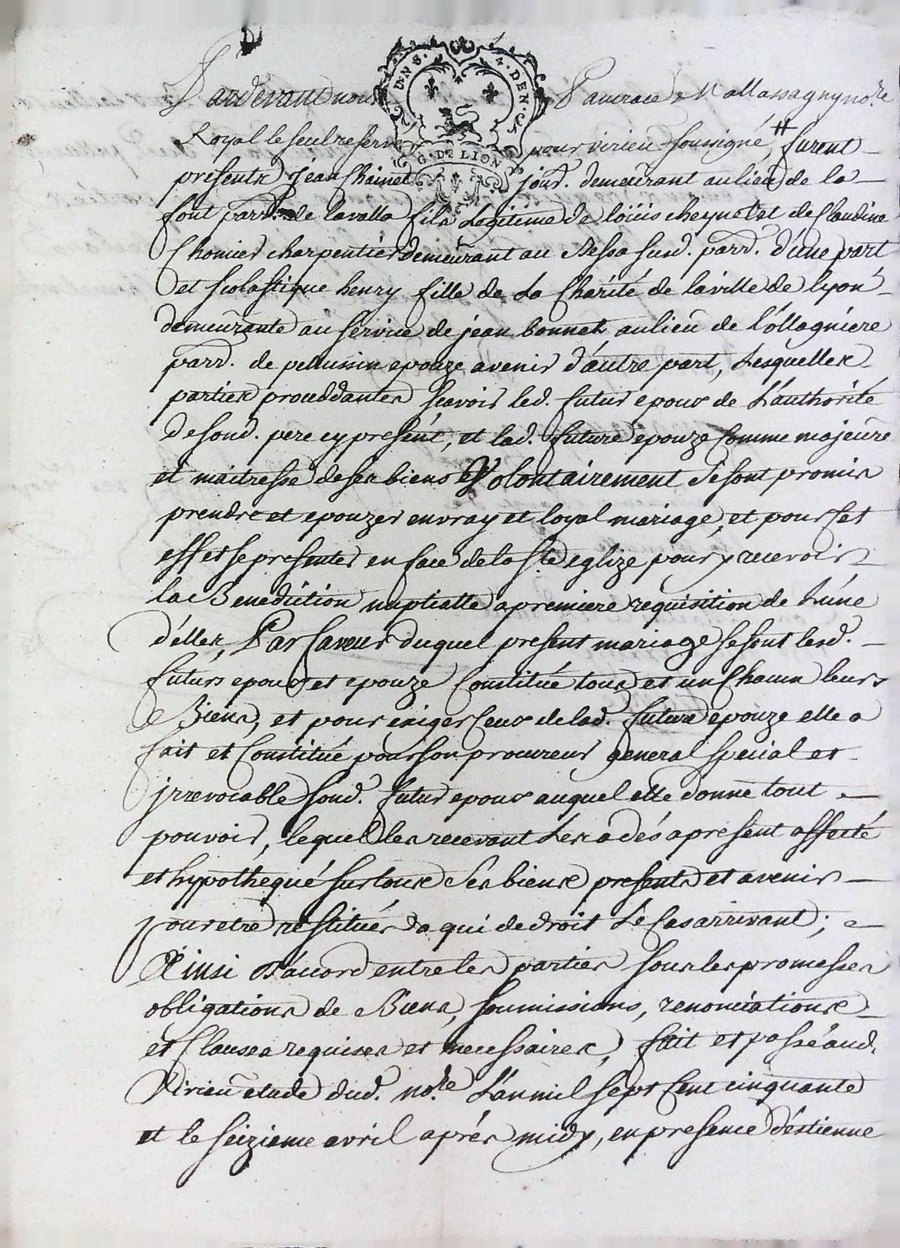 DEN S. 4. DEN.
G. DE LION
Pardevant nous Pancrace Mallassagny no.re
Royal le seul reservé pour virieu soussigné, # furent
presents Jean Chainet jourd. demeurant au lieu de la
font parr. de lavalla fils Legitime de loüis cheynet et de Claudine
Chomier charpentier demeurant au Bessa susd. parr. d'une part
et scolastique henry fille de La Charité de la ville de lyon
demeurante au service de jean bonnet au lieu de L'ollagniere
parr. de pelussin epouze avenir d'autre part, Lesquelles
parties proceddantes scavoir led. futur epoux de L'authorité
de sond. pere cy present, et lad. future epouze comme majeure
et maitresse de ses biens Volontairement se sont promis
prendre et epouzer en vray et loyal mariage, et pour cet
effet se presenter en face de la S.te eglize pour y recevoir
la Benediction nuptialle a premiere requisition de L'une
d'elles, Par faveur duquel present mariage se sont lesd.
futurs epoux et epouze Constitué tous et un Chacun leurs
Biens, et pour exiger Ceux de lad. future epouze elle a
fait et Constitué pour son procureur general special et
jrrevocable sond. futur epoux auquel elle donne tout
pouvoir, lequel les recevant Les a dés apresent affecté
et hypothequé sur tous Ses biens presents et avenir
pour etre restitués a qui de droit Le Cas arrivant;
Ainsi d'accord entre les parties sous les promesses
obligations de Biens, soumissions, renonciations
et Clauses requises et necessaires, fait et passé aud.
Virieu etude dud. no.re L'an mil sept Cent cinquante
et le seizieme avril aprés midy, en presence d'estienne